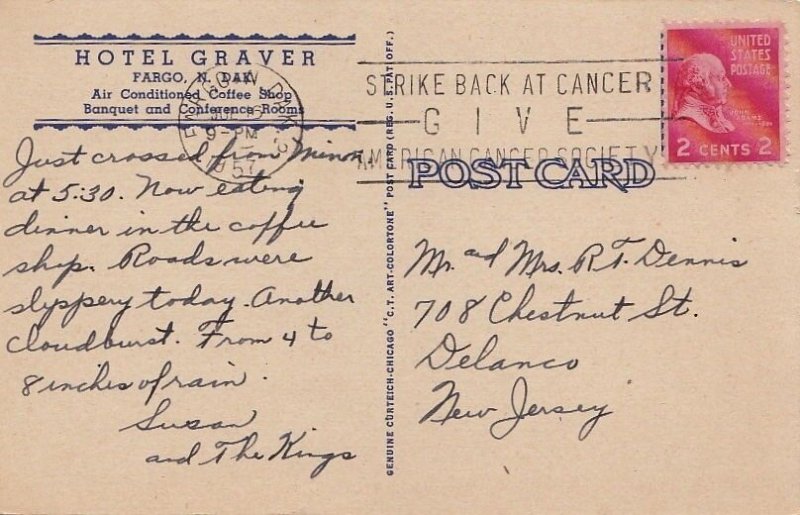 HOTEL GRAVER
FARGO, N. DAK.
Air Conditioned Coffee Shop
Banquet and Conference Rooms
FARGO N. DAK.
9 - PM
1957
Just crossed from Minn.
at 5:30. Now eating
dinner in the coffee
shop. Roads were
slippery today. Another
Cloudburst. From 4 to
8 inches of rain.
Susan
and The Kings
GENUINE CURTEICH-CHICAGO "C.T. ART-COLORTONE" POST CARD (REG. U.S. PAT. OFF.)
STRIKE BACK AT CANCER
GIVE
AMERICAN CANCER SOCIETY
POST CARD
UNITED
STATES
POSTAGE
JOHN
ADAMS
2 CENTS 2
Mr. and Mrs. R. T. Dennis
708 Chestnut St.
Delanco
New Jersey